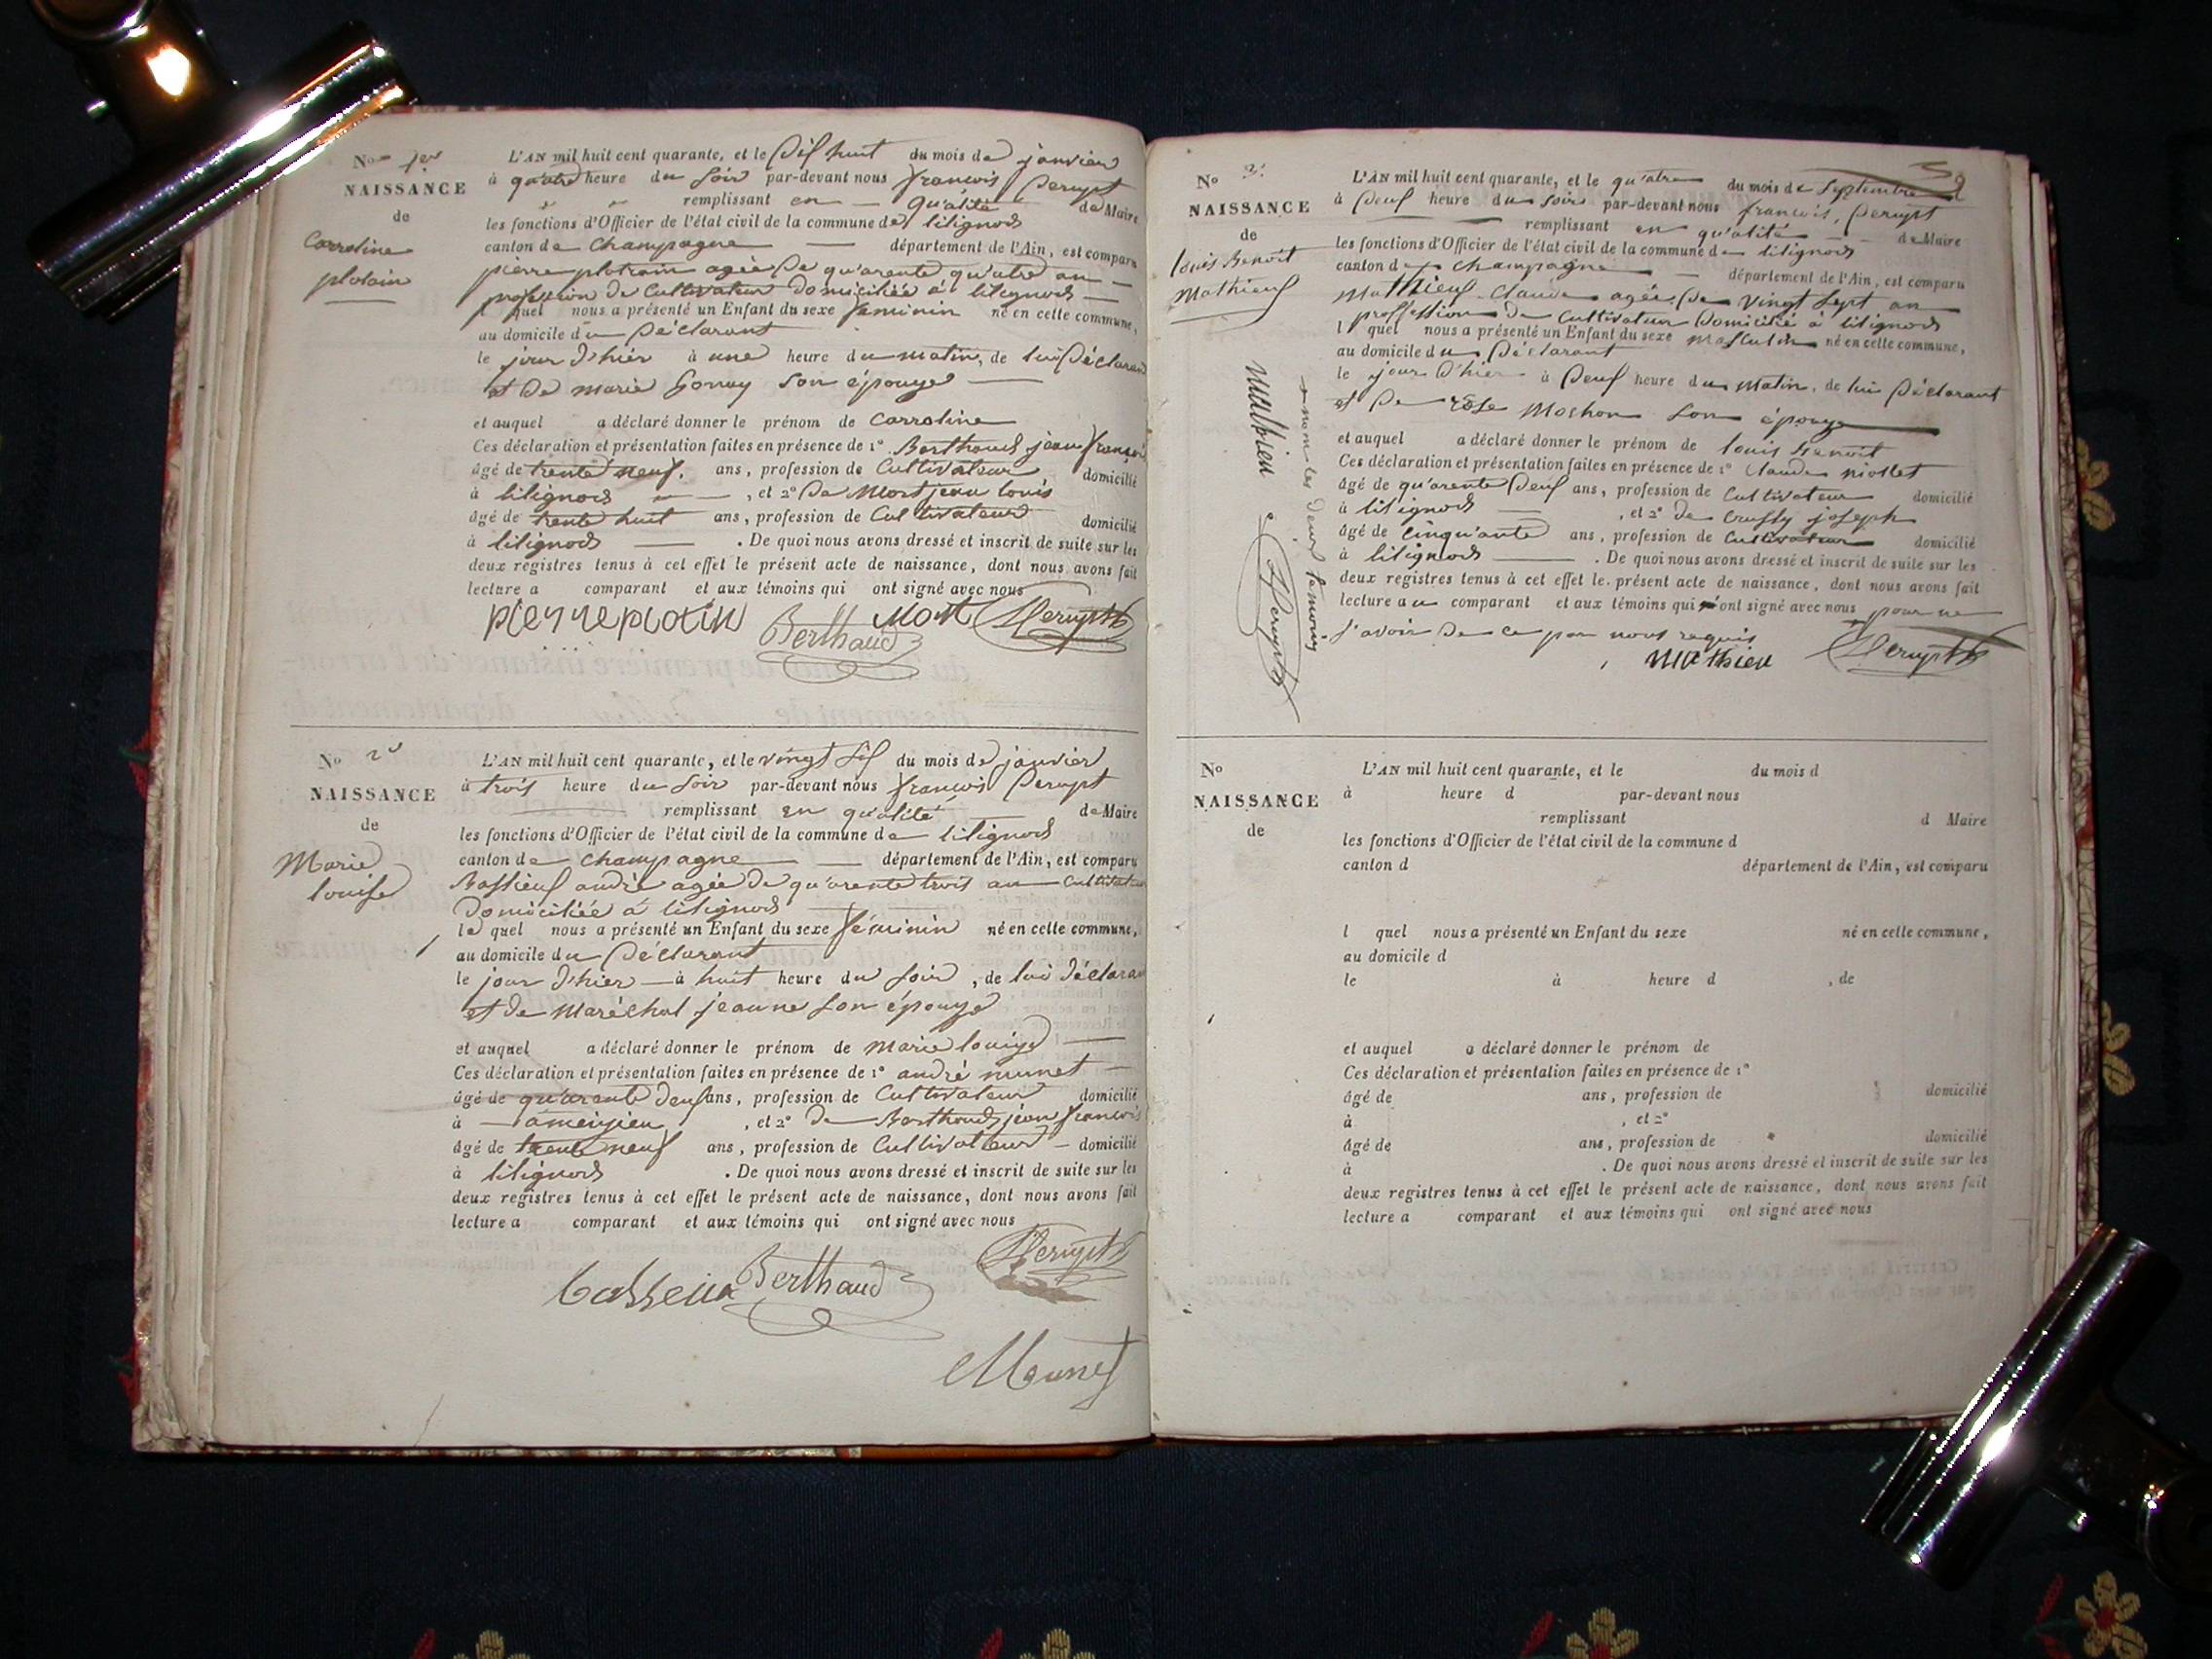 No 1er
NAISSANCE
de
Carroline
plotain
L'AN mil huit cent quarante, et le dix huit du mois de janvier
à quatre heure du soir par-devant nous francois Perupt
remplissant en qu'alité de Maire
les fonctions d'Officier de l'état civil de la commune de lilignods
canton de Champagne département de l'Ain, est comparu
pierre plotain agée de qu'arente qu'atre an
profession de Cultivateur domiciliée à lilignods
l quel nous a présenté un Enfant du sexe feminin né en cette commune,
au domicile du Déclarant
le jour d'hier à une heure du matin, de lui Déclarant
et de marie son épouge
et auquel a déclaré donner le prénom de Carroline
Ces déclaration et présentation faites en présence de 1° Berthaud jean françois
âgé de trente neuf. ans, profession de Cultivateur domicilié
à lilignods , et 2° De Mort jean louis
âgé de trente huit ans, profession de Cultivateur domicilié
à lilignods . De quoi nous avons dressé et inscrit de suite sur les
deux registres tenus à cet effet le présent acte de naissance, dont nous avons fait
lecture a comparant et aux témoins qui ont signé avec nous
pierre plotin Berthaud Mort Perupt
No 2e
NAISSANCE
de
Marie
louise
L'AN mil huit cent quarante, et le vingt six du mois de janvier
à trois heure du soir par-devant nous francois Perupt
remplissant en qu'alité de Maire
les fonctions d'Officier de l'état civil de la commune de lilignods
canton de Champagne département de l'Ain, est comparu
Bassieux andré agée de qu'arente trois an Cultivateur
Domiciliée à lilignods
le quel nous a présenté un Enfant du sexe féminin né en cette commune,
au domicile du Déclarant
le jour d'hier à huit heure du soir, de lui déclarant
et de Maréchal jeanne son épouge
et auquel a déclaré donner le prénom de Marie louise
Ces déclaration et présentation faites en présence de 1° andré munet
âgé de qu'arente deux ans, profession de Cultivateur domicilié
à ameyzieu , et 2° de Berthaud jean francois
âgé de trente neuf ans, profession de Cultivateur domicilié
à lilignods . De quoi nous avons dressé et inscrit de suite sur les
deux registres tenus à cet effet le présent acte de naissance, dont nous avons fait
lecture a comparant et aux témoins qui ont signé avec nous
Basseiux Berthaud Perupt
Munet
No 3e
NAISSANCE
de
louis Benoit
Mathieux
L'AN mil huit cent quarante, et le qu'atre du mois de Septembre
à Deux heure du soir par-devant nous francois, Perupt
remplissant en qu'alité de Maire
les fonctions d'Officier de l'état civil de la commune de lilignods
canton de Champagne département de l'Ain, est comparu
Mathieux Claude agée de vingt sept an
proffession de Cultivateur Domicilié à lilignods
l quel nous a présenté un Enfant du sexe Masculin né en cette commune,
au domicile du Déclarant
le jour d'hier à Deux heure du Matin, de lui Déclarant
et De rose Mochon son épouge
et auquel a déclaré donner le prénom de louis Benoit
Ces déclaration et présentation faites en présence de 1° Claude niollet
âgé de qu'arente Deux ans, profession de Cultivateur domicilié
à lilignods , et 2° de joseph
âgé de Cinqu'ante ans, profession de Cultivateur domicilié
à lilignods . De quoi nous avons dressé et inscrit de suite sur les
deux registres tenus à cet effet le présent acte de naissance, dont nous avons fait
lecture au comparant et aux témoins qui n'ont signé avec nous pour ne
savoir De ce par nous requis
Mathieu Perupt
non les deux témoins
Mathieu Perupt
No
NAISSANCE
de
L'AN mil huit cent quarante, et le du mois d
à heure d par-devant nous
remplissant d Maire
les fonctions d'Officier de l'état civil de la commune d
canton d département de l'Ain, est comparu
l quel nous a présenté un Enfant du sexe né en cette commune,
au domicile d
le à heure d , de
et auquel a déclaré donner le prénom de
Ces déclaration et présentation faites en présence de 1°
âgé de ans, profession de domicilié
à , et 2°
âgé de ans, profession de domicilié
à . De quoi nous avons dressé et inscrit de suite sur les
deux registres tenus à cet effet le présent acte de naissance, dont nous avons fait
lecture a comparant et aux témoins qui ont signé avec nous